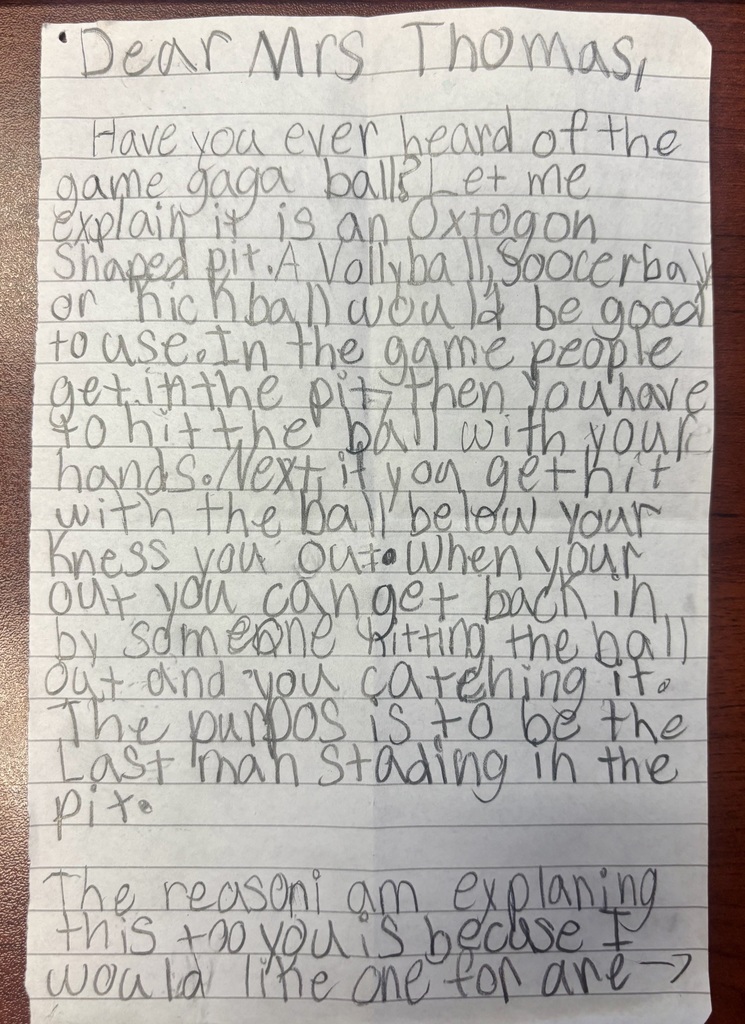 Dear Mrs Thomas,
Have you ever heard of the
game gaga ball? Let me
explain it is an Oxtogon
Shaped pit. A Vollyball, Soocerball
or kickball would be good
to use. In the game people
get in the pit, then you have
to hit the ball with your
hands. Next, if you get hit
with the ball below your
kness you out. When your
out you can get back in
by someone hitting the ball
out and you catching it.
The purpos is to be the
Last man stading in the
pit.
The reason i am explaning
this too you is becuse I
would like one for are →